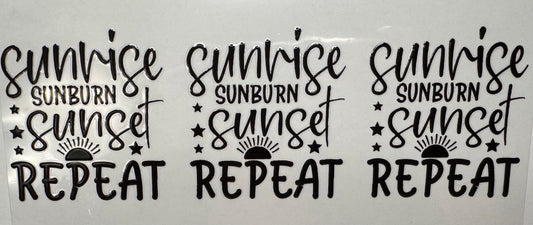 sunrise sunrise sunrise
SUNBURN SUNBURN SUNBURN
sunset sunset sunset
REPEAT REPEAT REPEAT